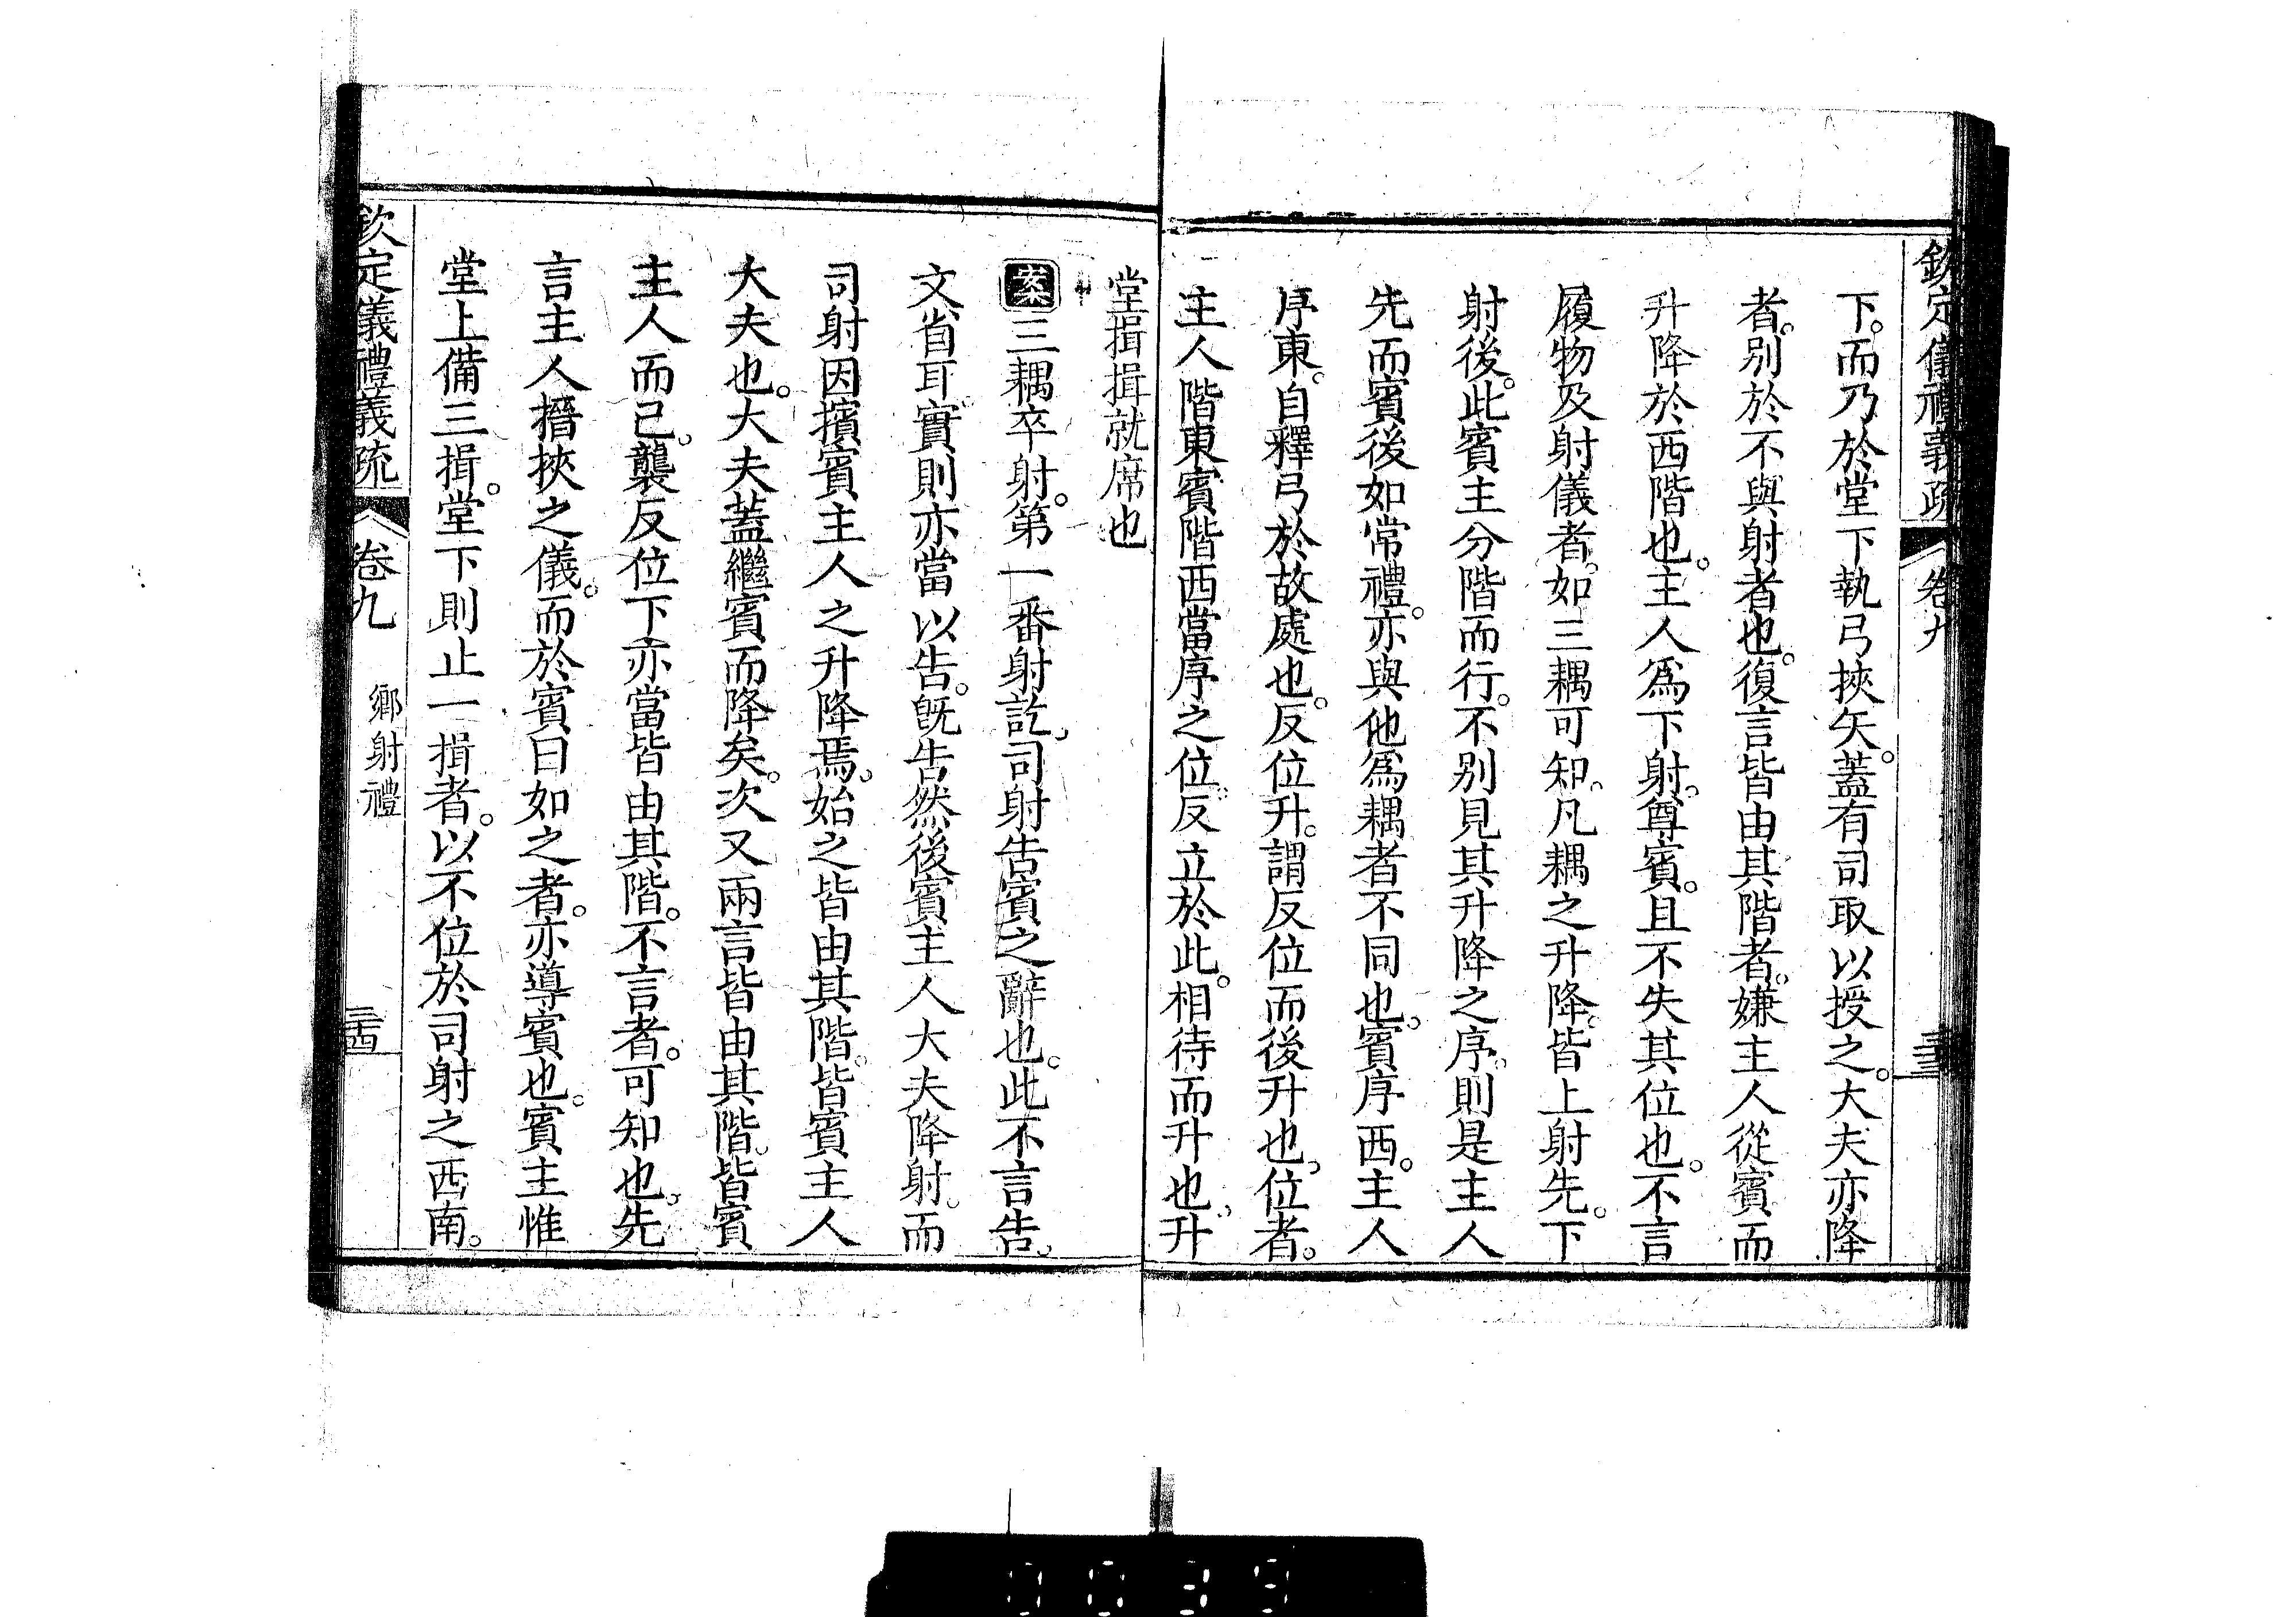 欽定儀禮義疏 卷九 三三
下。而乃於堂下執弓挾矢。蓋有司取以授之。大夫亦降
者。別於不與射者也。復言皆由其階者。嫌主人從賓而
升降於西階也。主人爲下射。尊賓。且不失其位也。不言
履物及射儀者。如三耦可知。凡耦之升降。皆上射先。下
射後。此賓主分階而行。不別見其升降之序。則是主人
先而賓後如常禮。亦與他爲耦者不同也。賓序西。主人
序東。自釋弓於故處也。反位升。謂反位而後升也。位者。
主人階東賓階西當序之位。反立於此。相待而升也。升
堂揖揖就席也
案三耦卒射。第一番射訖。司射告賓之辭也。此不言告。
文省耳。實則亦當以告。旣告然後賓主人大夫降射。而
司射因擯賓主人之升降焉。始之皆由其階。皆賓主人
大夫也。大夫蓋繼賓而降矣。次又兩言皆由其階。皆賓
主人而已。襲反位下亦當皆由其階。不言者。可知也。先
言主人搢挾之儀。而於賓曰如之者。亦導賓也。賓主惟
堂上備三揖。堂下則止一揖者。以不位於司射之西南。
欽定儀禮義疏 卷九 鄉射禮 三四